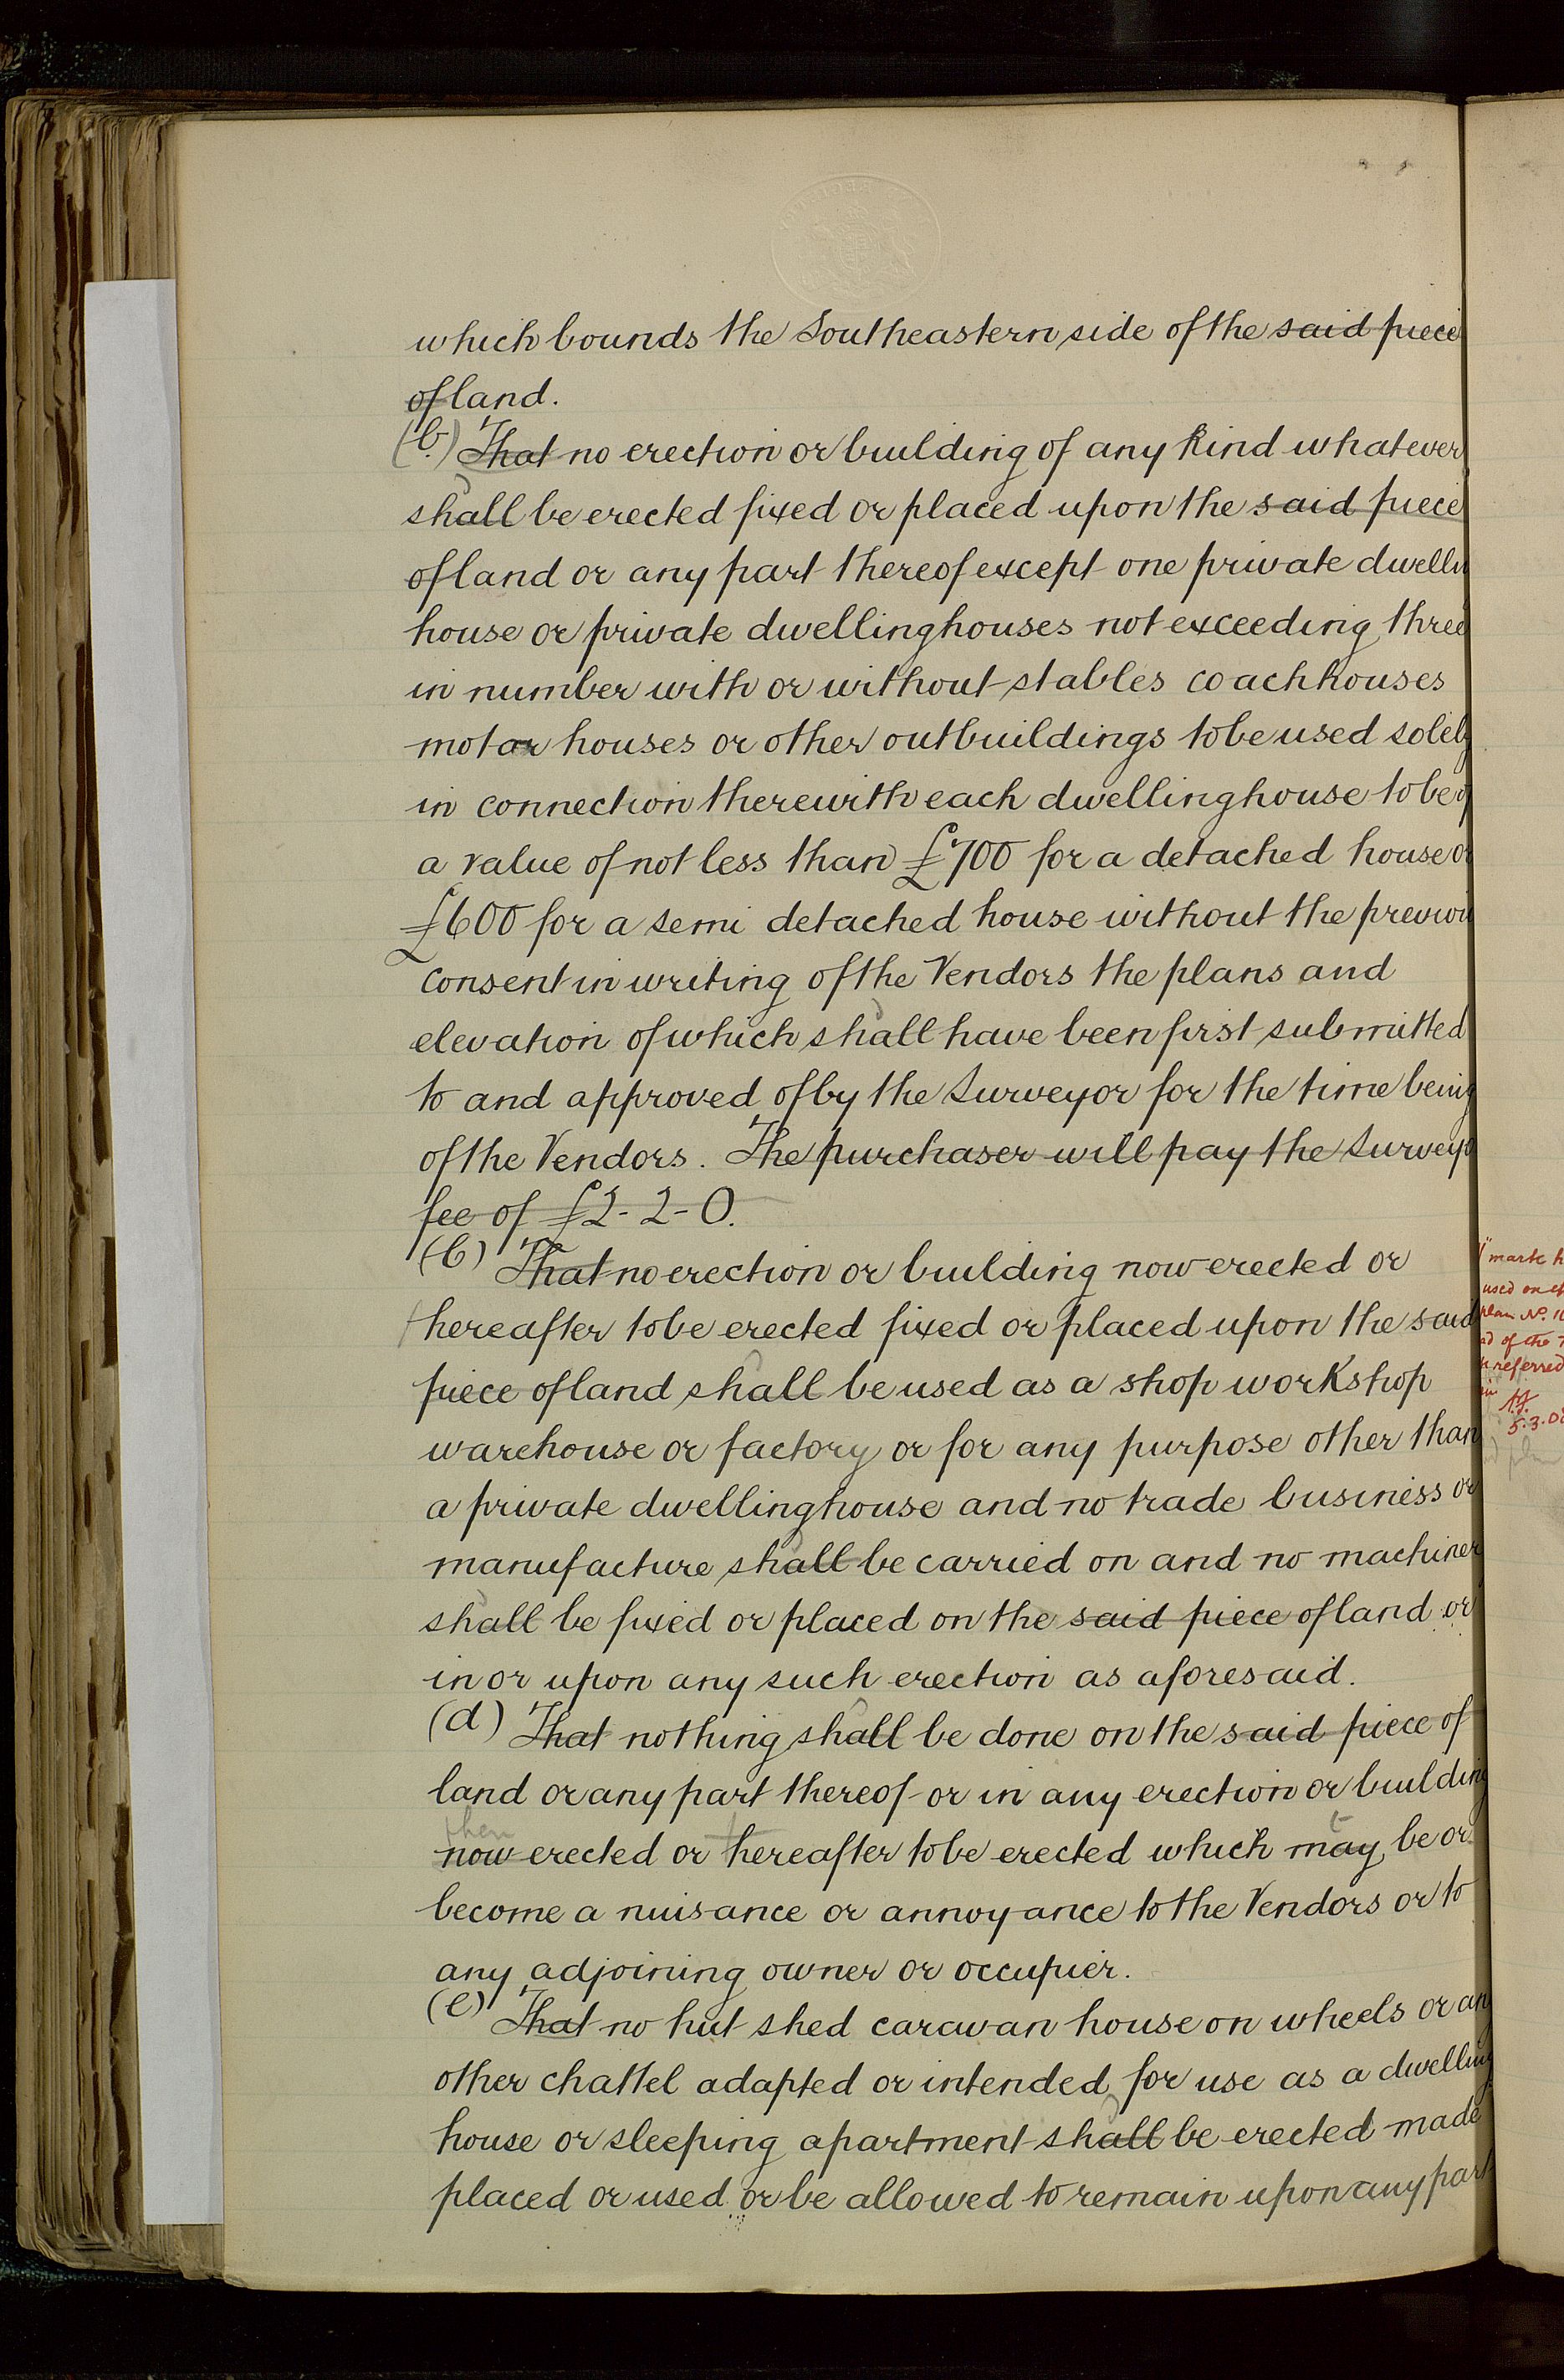 which bounds the Southeastern side of the said piece
of land.
(b.) That no erection or building of any kind whatever
shall be erected fixed or placed upon the said piece
of land or any part thereof except one private dwellin
house or private dwellinghouses not exceeding three
in number with or without stables coachhouses
motor houses or other outbuildings to be used solely
in connection therewith each dwellinghouse to be of
a value of not less than £700 for a detached house or
£600 for a semi detached house without the previou
consent in writing of the Vendors the plans and
elevation of which shall have been first submitted
to and approved of by the Surveyor for the time being
of the Vendors. The purchaser will pay the Surveyo
fee of £2-2-0.
(b) That no erection or building now erected or
thereafter to be erected fixed or placed upon the said
piece of land shall be used as a shop workshop
warehouse or factory or for any purpose other than
a private dwellinghouse and no trade business or
manufacture shall be carried on and no machiner
shall be fixed or placed on the said piece of land or
in or upon any such erection as aforesaid.
(d) That nothing shall be done on the said piece of
land or any part thereof or in any erection or building
then
now erected or thereafter to be erected which may be or
become a nuisance or annoyance to the Vendors or to
any adjoining owner or occupier.
(e) That no hut shed caravan house on wheels or any
other chattel adapted or intended for use as a dwelling
house or sleeping apartment shall be erected made
placed or used or be allowed to remain upon any part
"T" mark h
used on
plan No. 1
of the
referred
5.3.0
plan